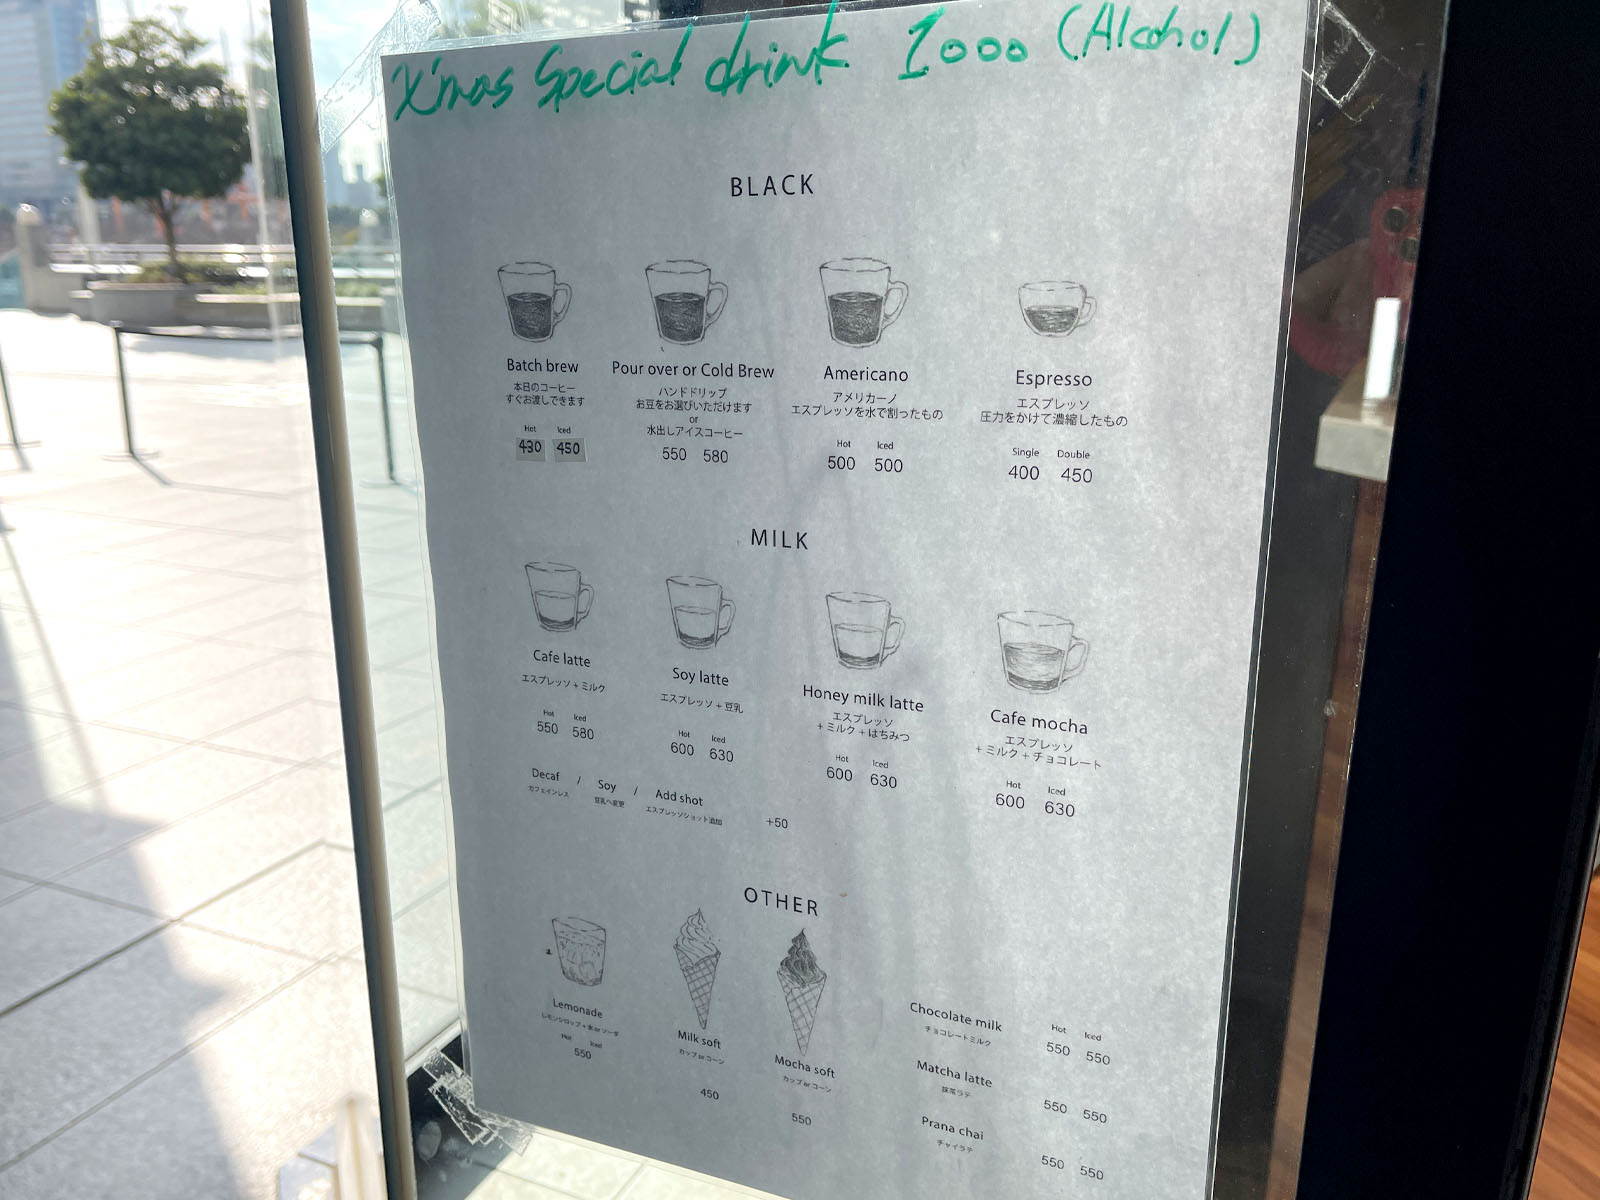 X'mas Special drink 1000 (Alcohol)
BLACK
Batch brew
本日のコーヒー
すぐお渡しできます
Hot Iced
430 450
Pour over or Cold Brew
ハンドドリップ
お豆をお選びいただけます
or
水出しアイスコーヒー
550 580
Americano
アメリカーノ
エスプレッソを水で割ったもの
Hot Iced
500 500
Espresso
エスプレッソ
圧力をかけて濃縮したもの
Single Double
400 450
MILK
Cafe latte
エスプレッソ + ミルク
Hot Iced
550 580
Soy latte
エスプレッソ + 豆乳
Hot Iced
600 630
Honey milk latte
エスプレッソ
+ ミルク + はちみつ
Hot Iced
600 630
Cafe mocha
エスプレッソ
+ ミルク + チョコレート
Hot Iced
600 630
Decaf / Soy / Add shot +50
カフェインレス 豆乳へ変更 エスプレッソショット追加
OTHER
Lemonade
レモンシロップ + 水 or ソーダ
Hot Iced
550
Milk soft
カップ or コーン
450
Mocha soft
カップ or コーン
550
Chocolate milk
チョコレートミルク
Hot Iced
550 550
Matcha latte
抹茶ラテ
550 550
Prana chai
チャイラテ
550 550